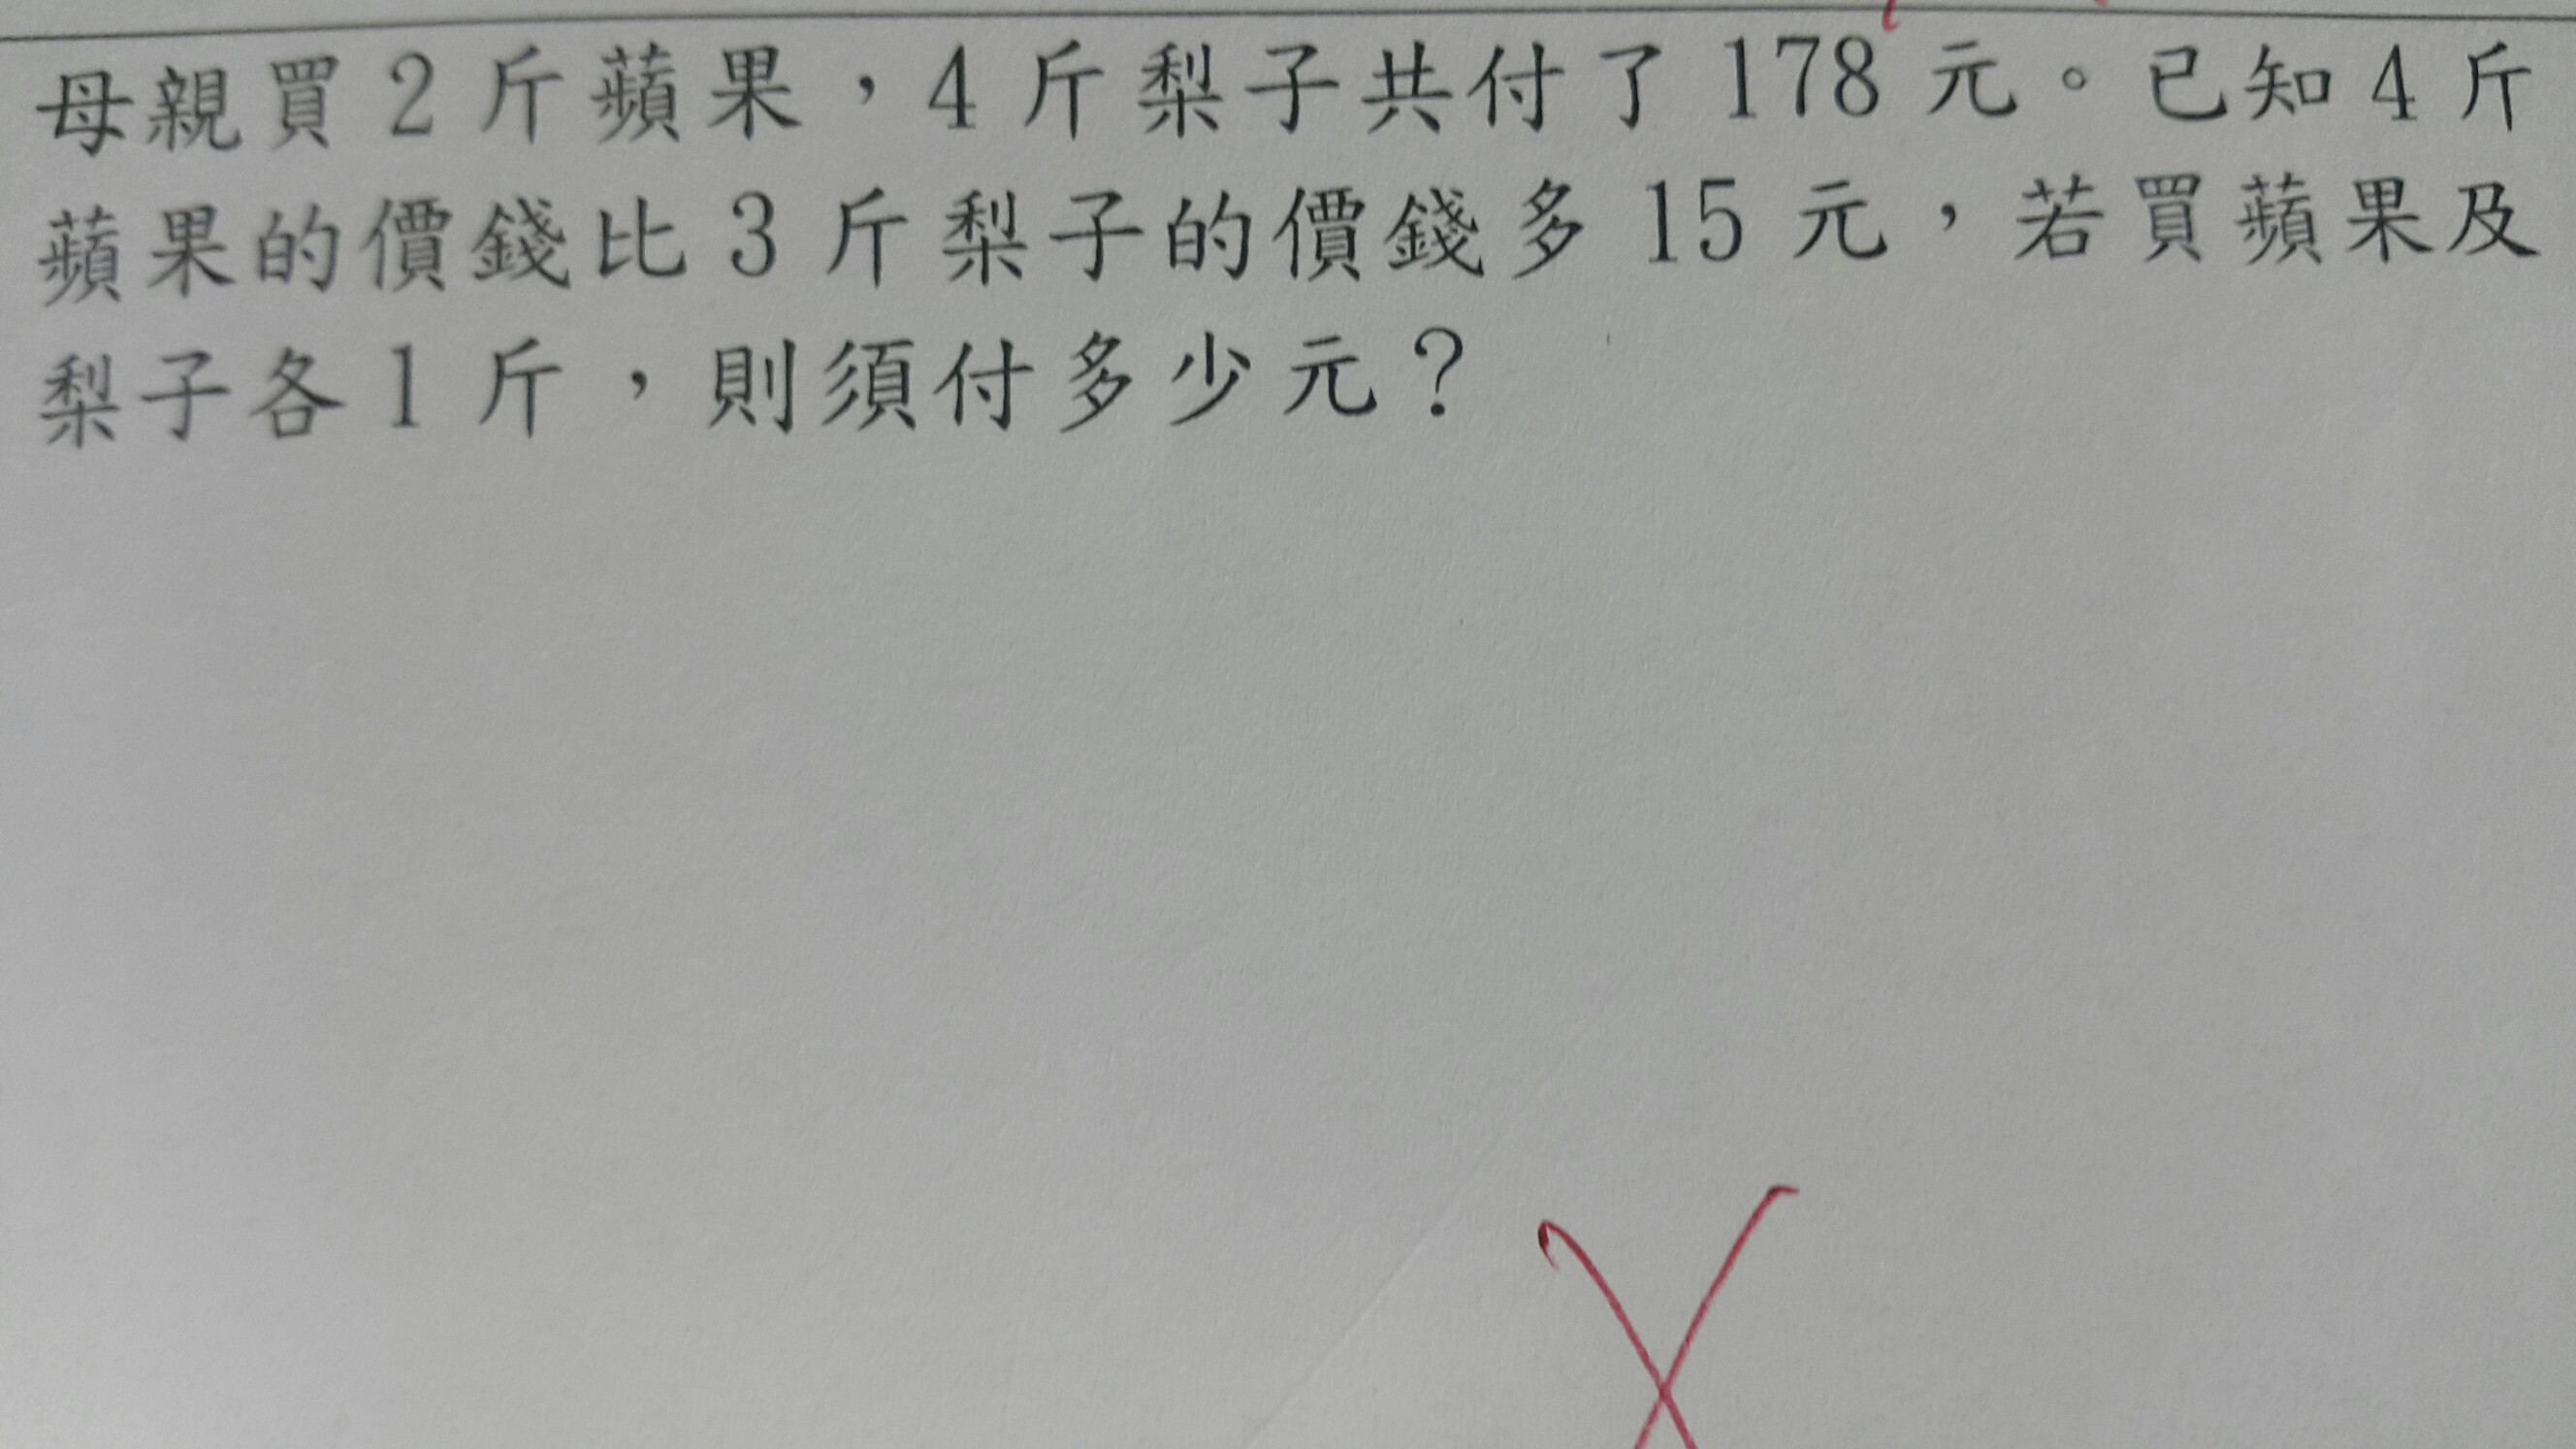 母親買2斤蘋果，4斤梨子共付了178元。已知4斤
蘋果的價錢比3斤梨子的價錢多15元，若買蘋果及
梨子各1斤，則須付多少元？